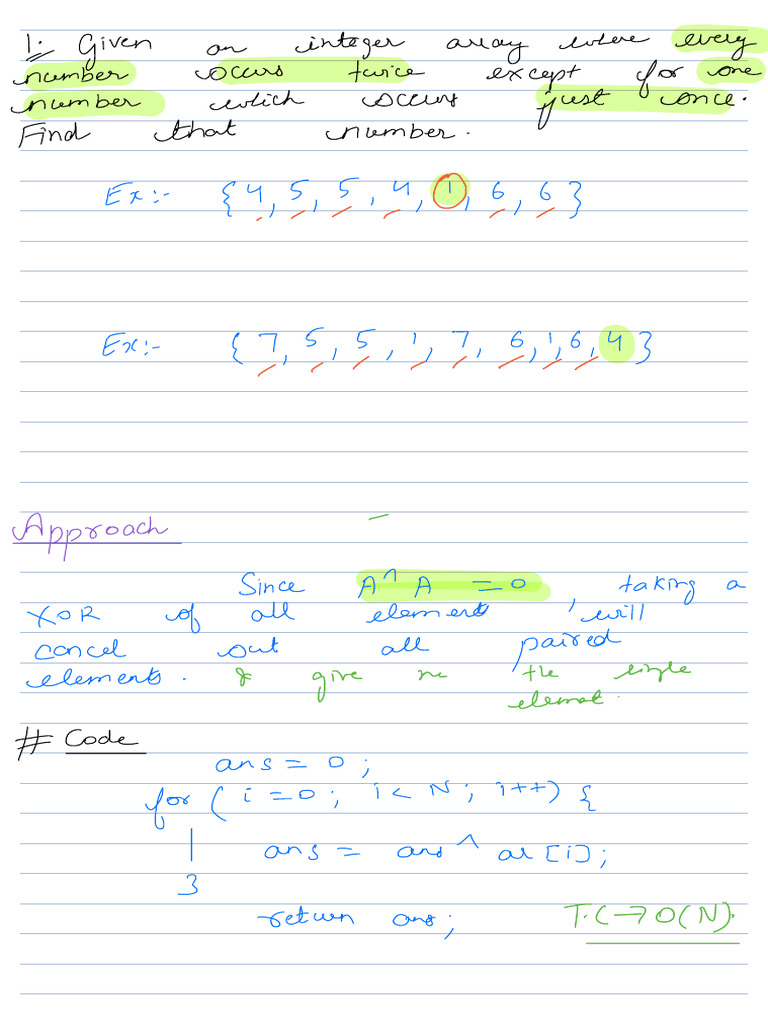 1. Given an integer array where every
number occurs twice except for one
number which occurs just once.
Find that number.
Ex:- {4, 5, 5, 4, 1, 6, 6}
Ex:- {7, 5, 5, 1, 7, 6, 1, 6, 4}
Approach
Since A^A = 0, taking a
XOR of all elements will
cancel out all paired
elements. & give me the single
element.
# Code
ans = 0;
for (i = 0; i < N; i++) {
ans = ans ^ ar[i];
}
return ans; T.C → O(N).